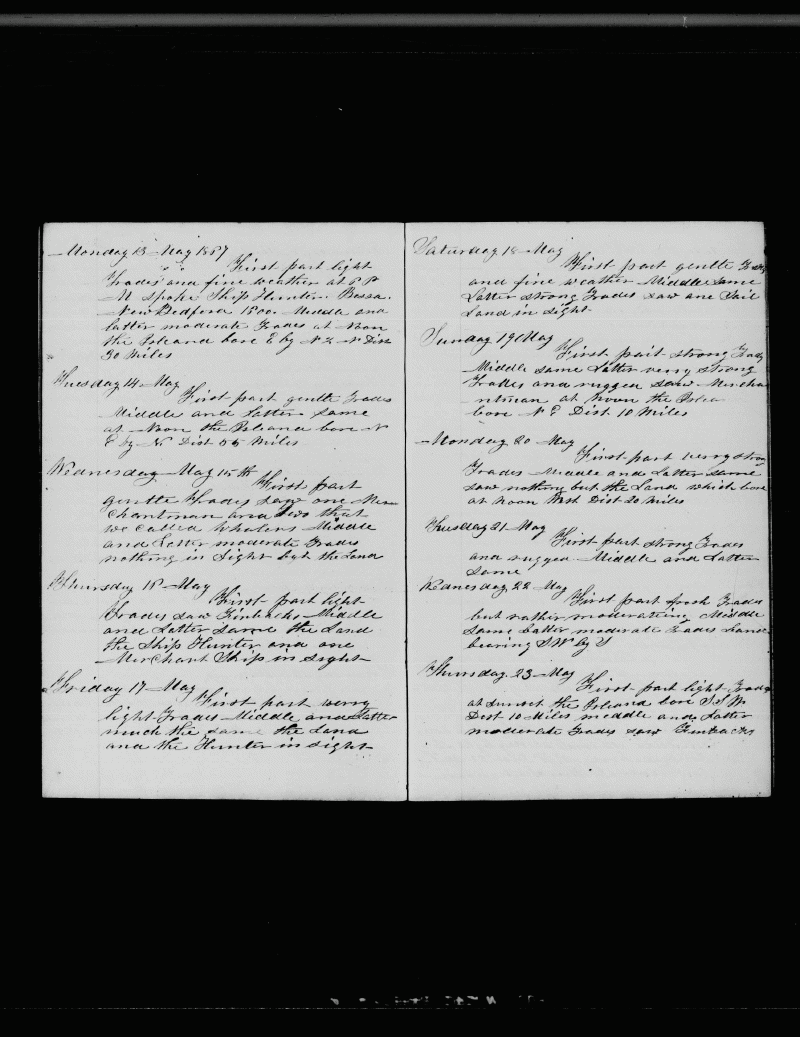 Monday 13 May 1867
First part light
Trades and fine weather at 6 P
M spoke Ship Hunter. Bessa.
New Bedford 1500. Middle and
latter moderate Trades at Noon
the Poleand bore E by N ½ N Dist
30 Miles
Tuesday 14 May
First part gentle Trades
Middle and Latter same
at Noon the Poleand bore N
E by N. Dist 55 Miles
Wednesday May 15th
First part
gentle Trades saw one Mer
chantman and two that
we called Whalers Middle
and Latter moderate Trades
nothing in Sight but the Land
Thursday 16 May
First part light
Trades saw Finbacks Middle
and Latter same the Land
the Ship Hunter and one
Merchant Ship in sight
Friday 17 May
First part verry
light Trades Middle and Latter
much the same the Land
and the Hunter in sight
Saturday 18 May
First part gentle Trades
and fine weather Middle same
Latter strong Trades saw one Sail
Land in sight
Sunday 19 May
First part strong Trades
Middle same Latter verry strong
Trades and rugged saw Mercha
ntman at Noon the Polea
bore N E Dist 10 Miles
Monday 20 May
First part verry strong
Trades Middle and Latter same
saw nothing but the Land which bore
at Noon West Dist 20 Miles
Tuesday 21 May
First part strong Trades
and rugged Middle and Latter
same
Wednesday 22 May
First part fresh Trades
but rather moderating Middle
same Latter moderate Trades Land
bearing S W by S
Thursday 23 May
First part light Trades
at sunset the Poleand bore S S W
Dist 10 Miles middle and Latter
moderate Trades saw Finbacks